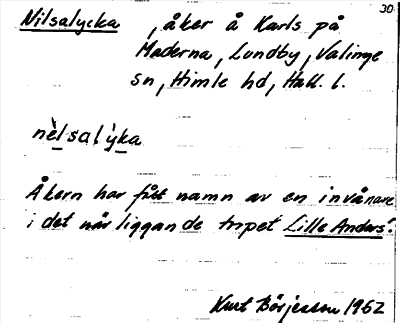 30.
Nilsalycka, åker å Karls på
Maderna, Lundby, Valinge
sn, Himle hd, Hall. l.
nèlsalýka
Åkern har fått namn av en invånare
i det när liggande torpet Lille Anders?.
Kurt Börjesson 1962